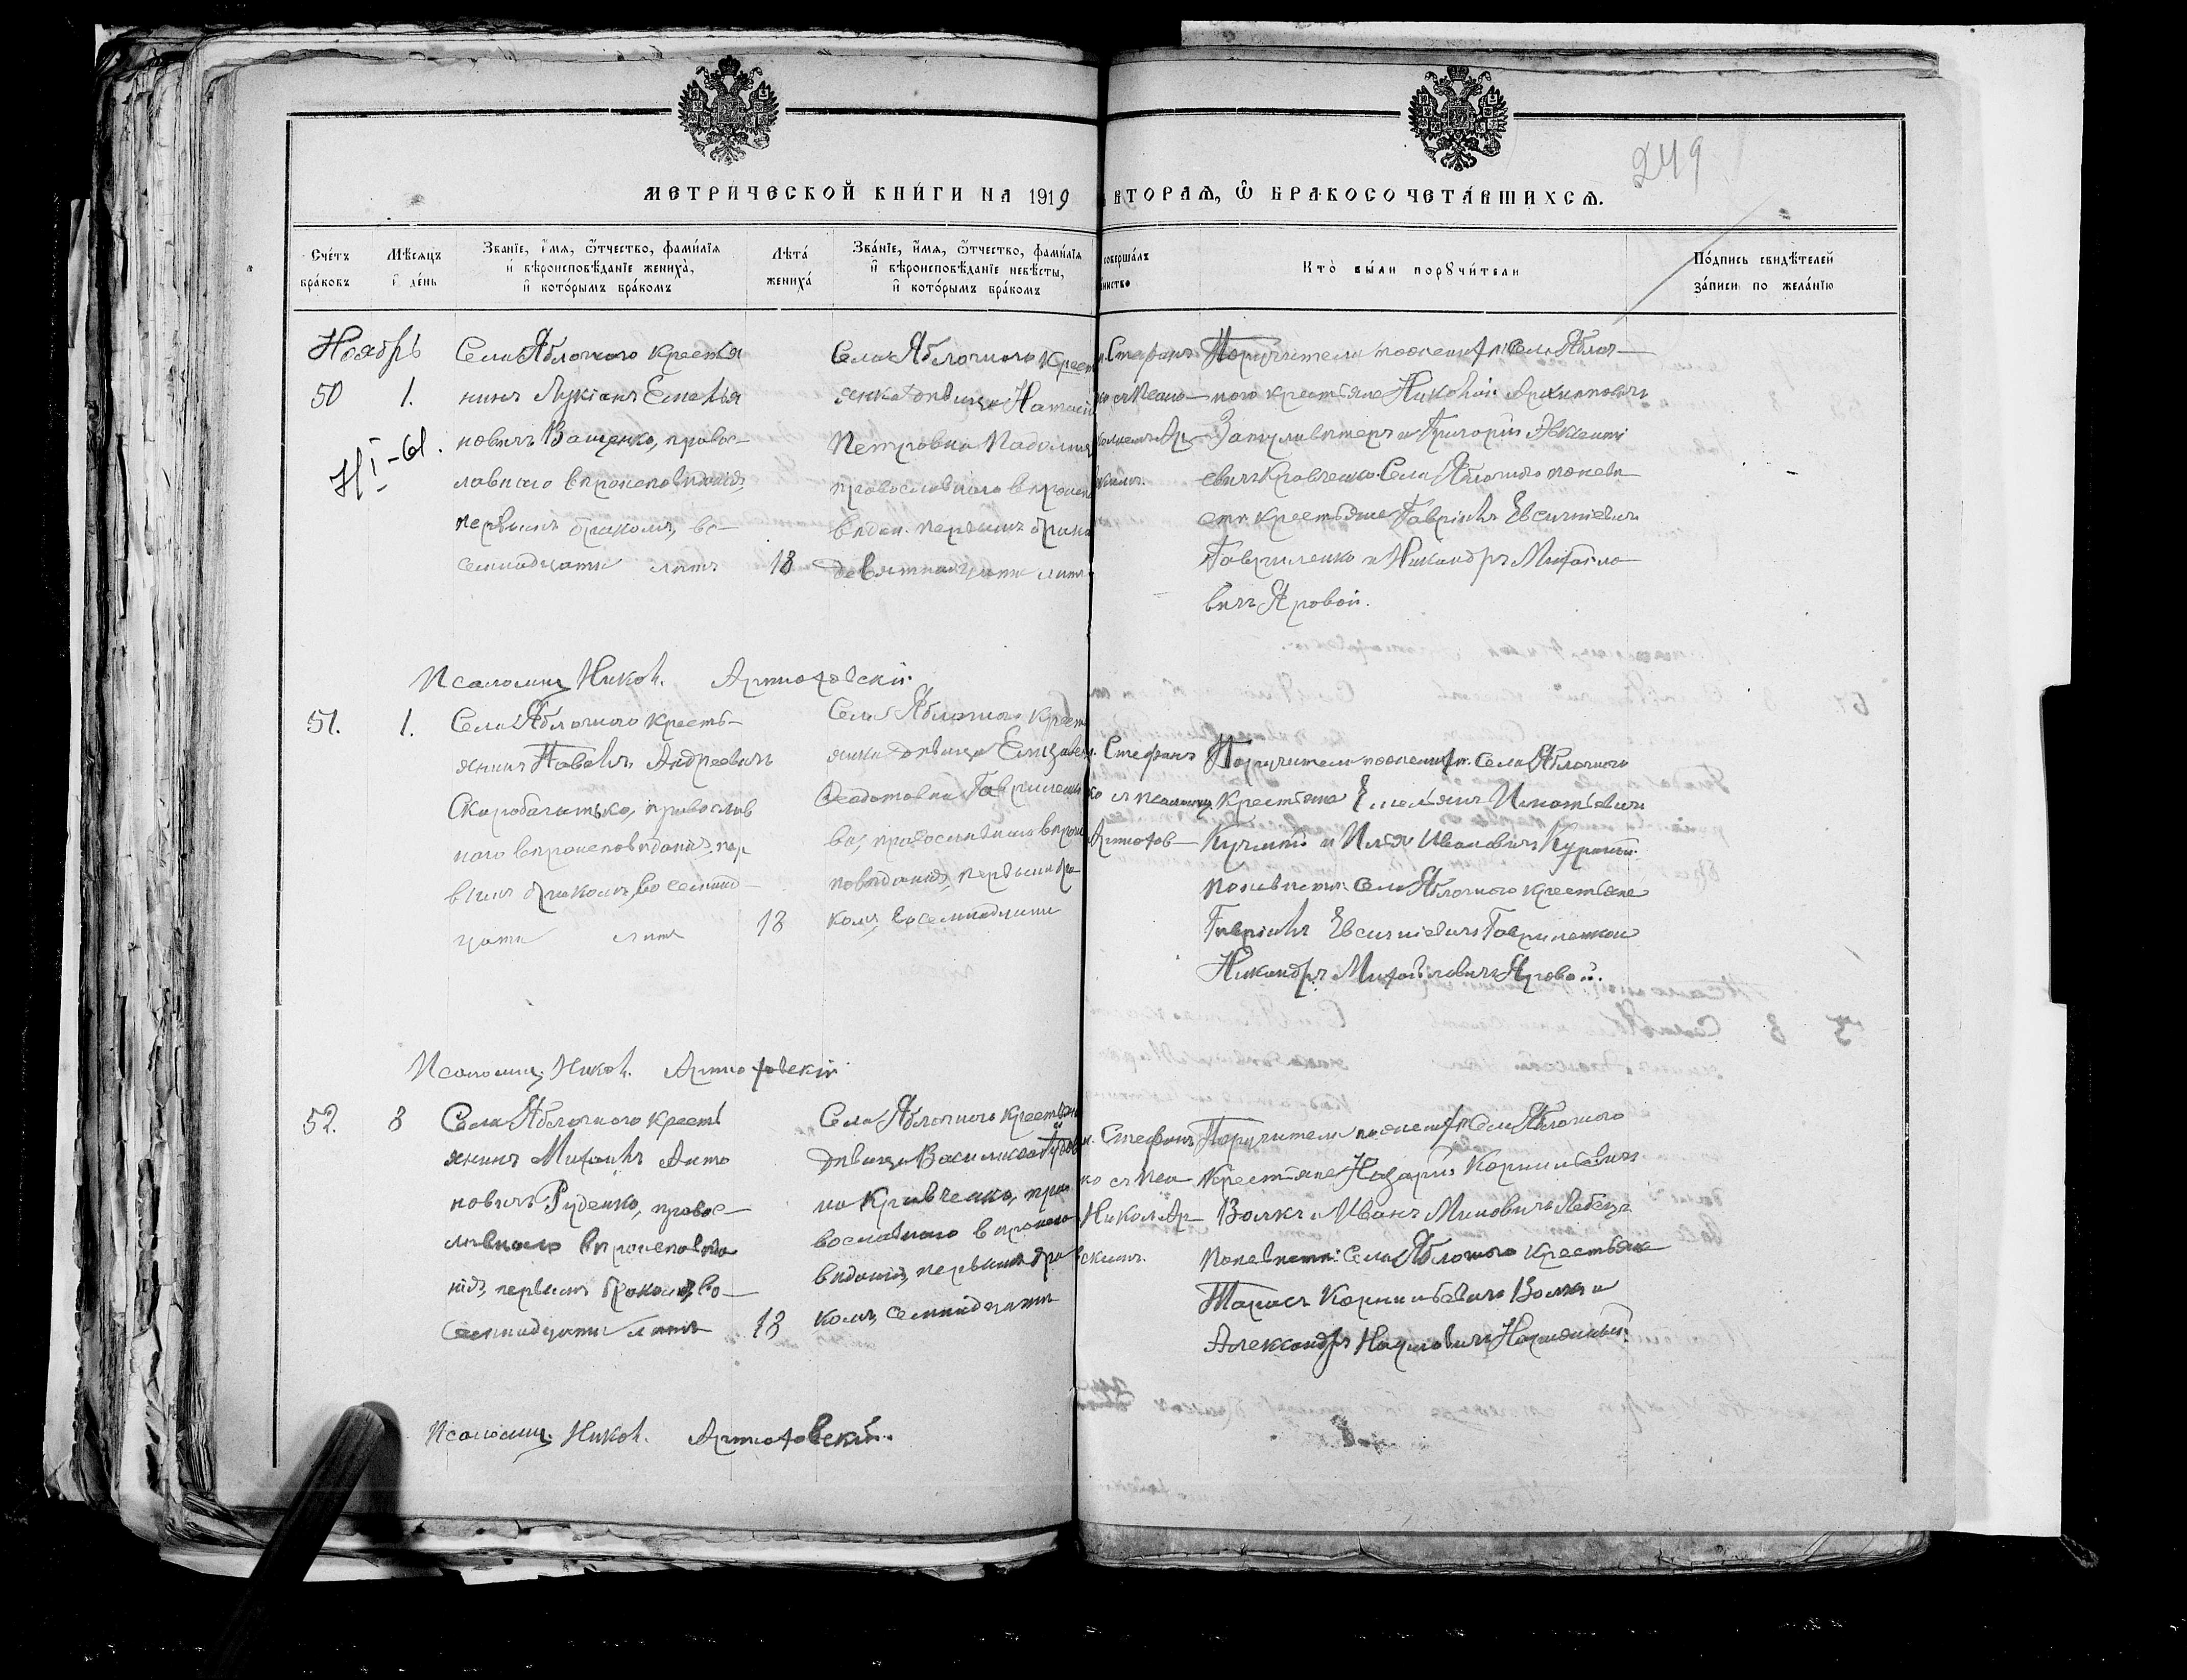 249
МЕТРИЧЕСКОЙ КНИГИ НА 1919
ВТОРАѦ, Ѿ БРАКОСОЧЕТАВШИХСѦ.
Счетъ браковъ
Мѣсяцъ и день
Званіе, имя, ѿтчество, фамилія
и вѣроисповѣданіе жениха,
и которымъ бракомъ
Лѣта
жениха
Званіе, имя, ѿтчество, фамилія
и вѣроисповѣданіе невѣсты,
и которымъ бракомъ
совершалъ
Кто были поручители
Подпись свидѣтелей
записи по желанію
Ноябрь
50 1.
Села Яблочного крестья
нинъ Лукіанъ Емелья
новичъ Ващенко, правос-
лавнаго вѣроисповѣданія,
первымъ бракомъ, во-
семнадцати лѣтъ
18
Села Яблочного крест
янка дѣвица
Петровна
православнаго вѣроис
вѣдан. первымъ брако
девятнадцати лѣтъ
Стефанъ
Поручители по жениху Села Яблоч-
ного крестьяне Николай Архиповичъ
и Григорій
евичъ Кравченко Села Яблочного по невѣ
стѣ крестьяне Гавріилъ Евсигніевичъ
Гавриленко и Никандръ Михайло-
вичъ Яровой.
Псаломщ. Никол. Артюховскій.
51. 1.
Села Яблочного кресть-
янинъ Павелъ Андреевичъ
Скоробагатько, православ
наго вѣроисповѣданія, пер
вымъ бракомъ, восемнад-
цати лѣтъ
18
Села Яблочного крест
янка дѣвица Елизаве
Федотовна Гавриленко
ва, православнаго вѣрои
повѣданія, первымъ бра
комъ, восемнадцати
Стефанъ
Артюхов-
Поручители по жениху. Села Яблочного
Крестьяне Емельянъ Игнатьевичъ
и Илья Ивановичъ
по невѣстѣ: Села Яблочного крестьяне
Гавріилъ Евсигніевичъ Гавриленко и
Никандръ Михайловичъ Яровой.
Псаломщ. Никол. Артюховскій
52. 8
Села Яблочного кресть
янинъ Михаилъ Анто
новичъ Руденко, правос-
лавнаго вѣроисповѣда
нія, первымъ бракомъ, во-
семнадцати лѣтъ
18
Села Яблочного крестьян
дѣвица Василиса
на Кравченко, пра
вославнаго вѣроиспо
вѣданія, первымъ бра
комъ, семнадцати
Стефанъ
Никол Ар-
скимъ.
Поручители по жениху Села Яблочного
Крестьяне Назарій Корнильевичъ
Волкъ и Иванъ Миновичъ
По невѣстѣ: Села Яблочного крестьяне
Тарасъ Корнильевичъ Волкъ и
Александръ Наумовичъ
Псаломщ. Никол. Артюховскій.